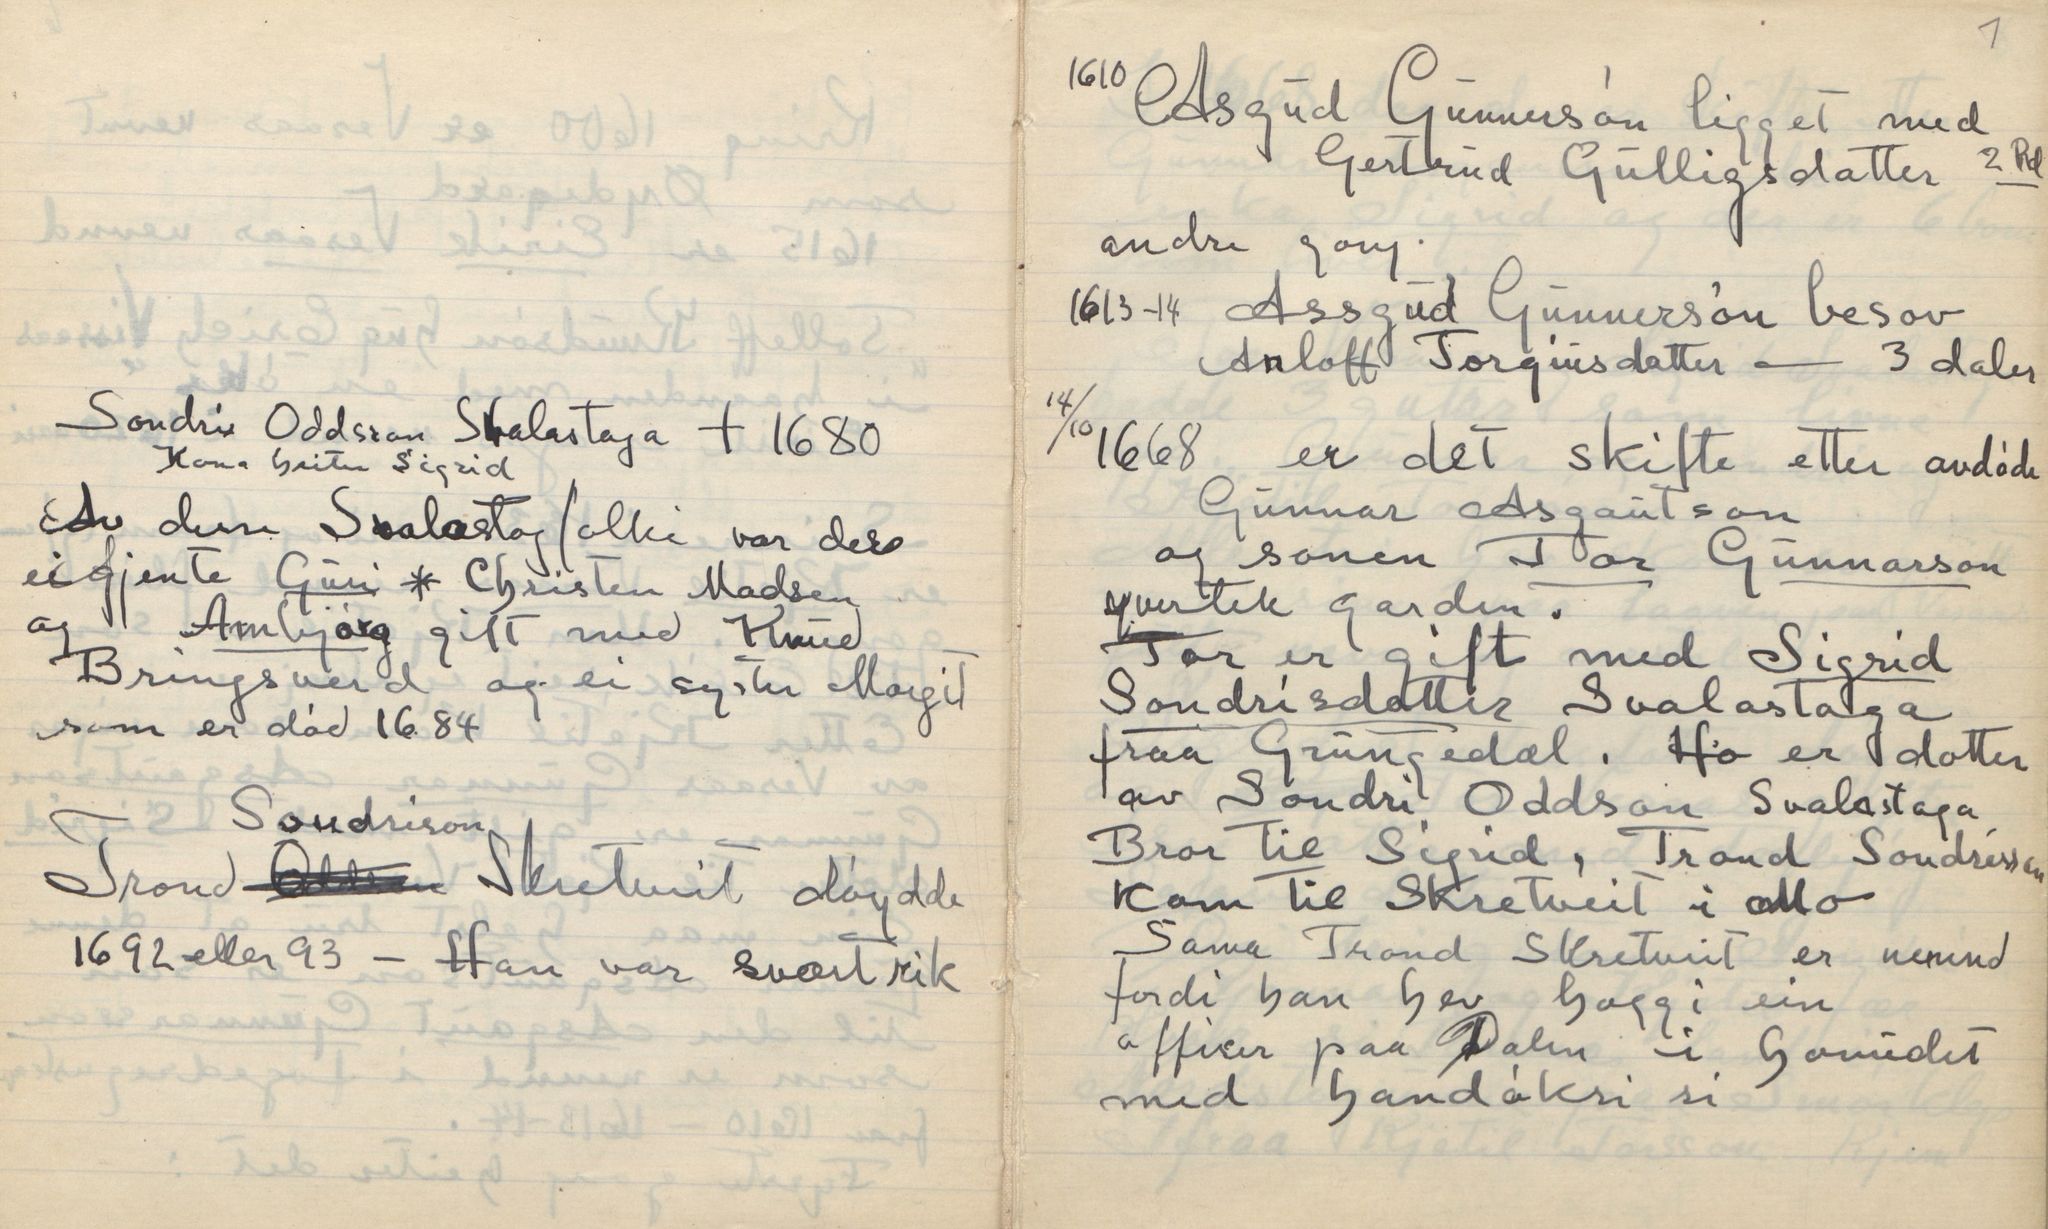 Sondre Oddsson Svalastoga + 1680
Kona heiter Sigrid
Av dere Svalastogfolki var des
ei gjente Gūri * Christen Madsen
og Ambjørg gift med Knūd
Bringsverd og ei syster Margit
som er død 1684
Sondrison
Trond Skretveit døydde
1692 eller 93 – Han var svært rik
1
1610 Asgūd Gūnnersón ligget med
Gertrūd Gūlligsdatter 2 Rd
andre gong.
1613-14 Assgūd Gūnnersón besov
Anloff Torgiūsdatter — 3 daler
14/10 1668 er det skifte etter avdóde
Gūnnar Asgaūtson
og sonen Tor Gūnnarson
yvertek garden.
Tor er gift med Sigrid
Sondrisdotter Svalastoga
fraa Grūngedal. Ho er dotter
av Sondri Oddson Svalastoga
Bror til Sigrid, Trond Sondresson
kom til Skretveit i Mo
Sama Trond Skretveit er nemnd
fordi han hev hoggi ein
officer paa Dalen i hovūdet
med handóksi si